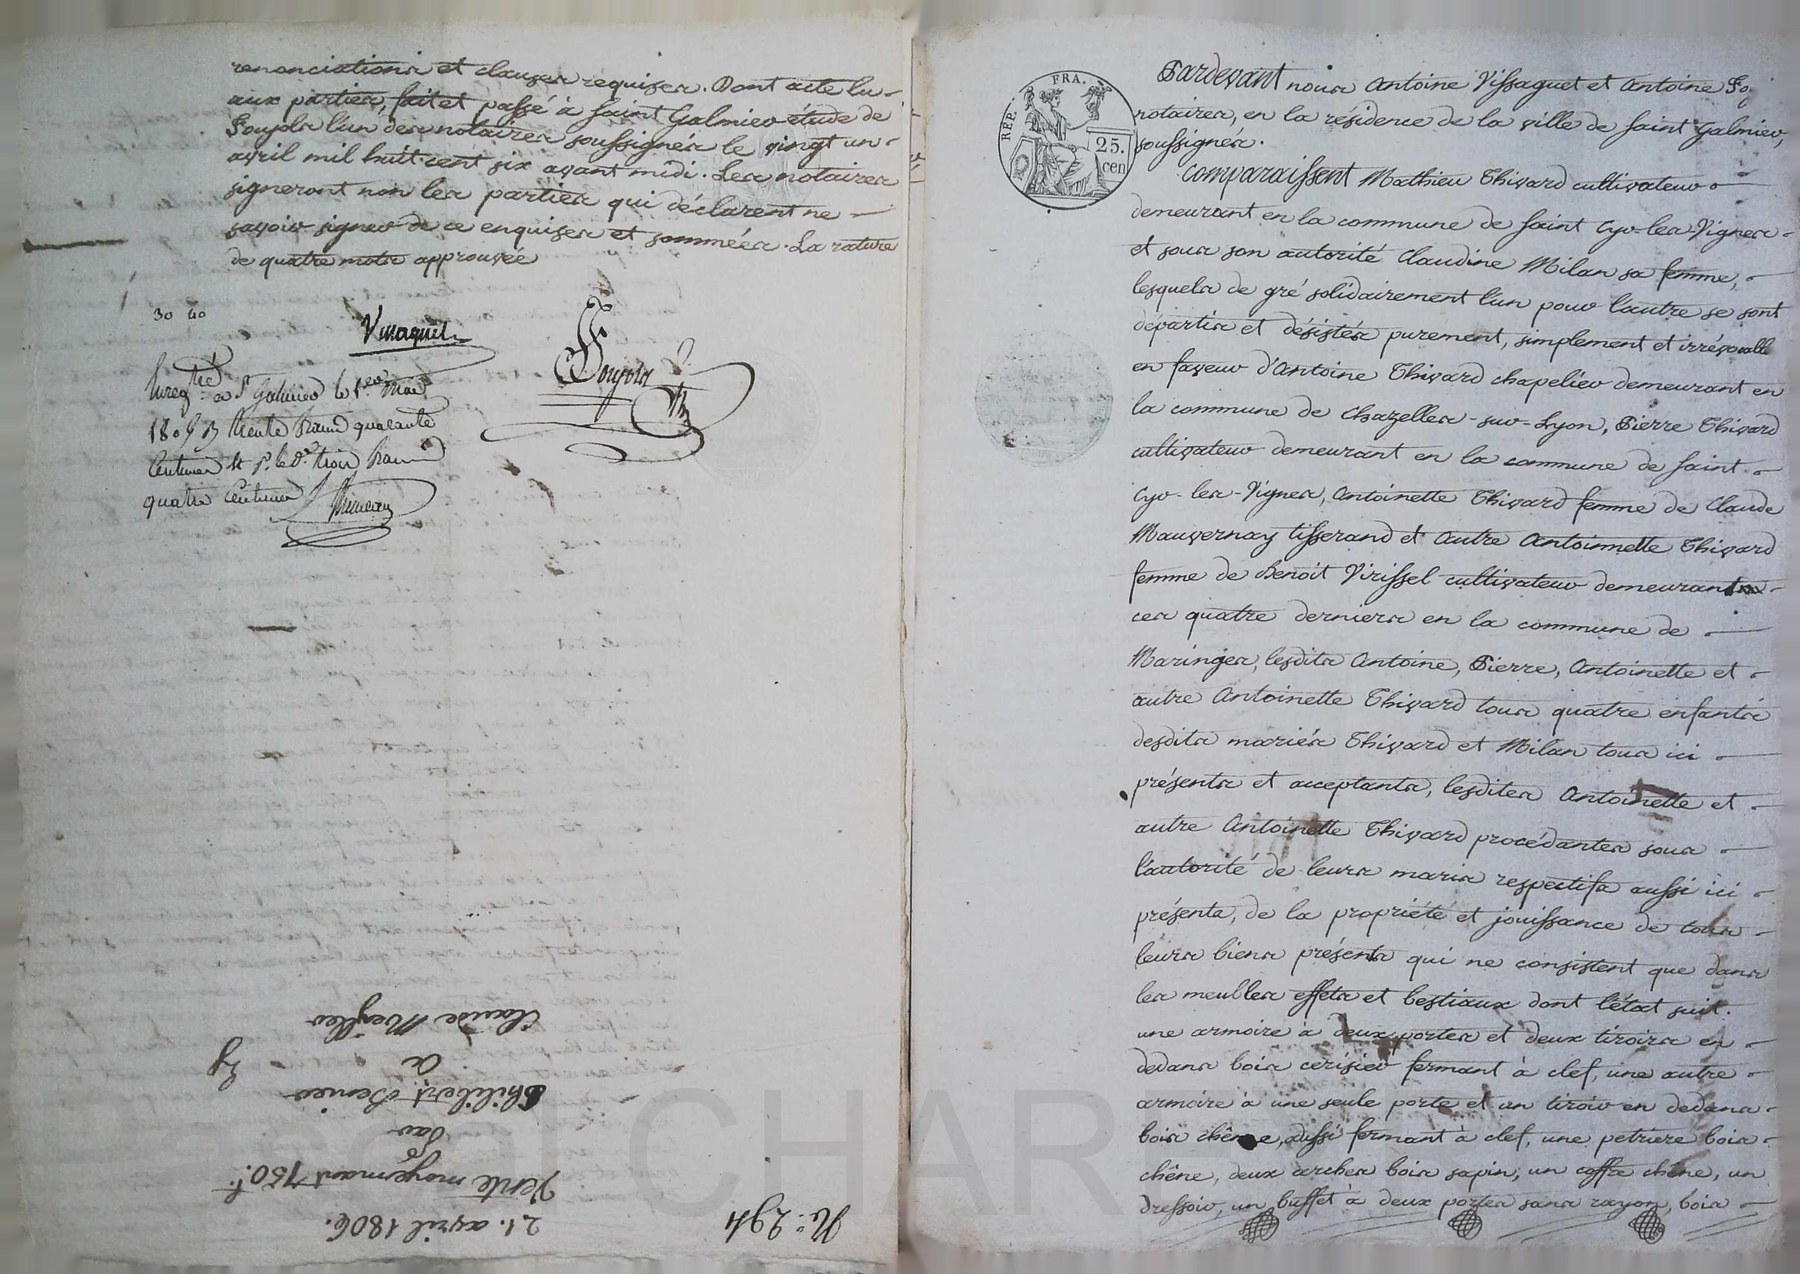 renonciations et clauses requises. Dont acte lu
aux parties, fait et passé à Saint Galmier étude de
Poujola l'un des notaires soussignés le vingt un
avril mil huit cent six avant midi. Les notaires
signeront non les parties qui déclarent ne
savoir signer de ce enquises et sommées. La rature
de quatre mots approuvée
30 40
Enregtré à St Galmier le 1er Mai
trente francs quarante
Centimes et pr le dr trois francs
quatre Centimes
N.° 294
21. avril 1806.
Vente moyennant 750f.
par
Philibert
a
Claude
RÉP. FRA.
25. cen
Pardevant nous Antoine Vissaguet et Antoine
notaires, en la résidence de la ville de Saint Galmier,
soussignés.
Comparaissent Mathieu Thivard cultivateur
demeurant en la commune de Saint Cyr-les Vignes
et sous son autorité Claudine Milan sa femme,
lesquels de gré solidairement l'un pour l'autre se sont
départis et désistés purement, simplement et
en faveur d'Antoine Thivard chapelier demeurant en
la commune de Chazelles-sur-Lyon, Pierre Thivard
cultivateur demeurant en la commune de Saint
Cyr-les-Vignes, Antoinette Thivard femme de Claude
Mauvernay tisserand et autre Antoinnette Thivard
femme de Benoit Virissel cultivateur demeurant
ces quatre derniers en la commune de
Maringes, lesdits Antoine, Pierre, Antoinette et
autre Antoinette Thivard tous quatre enfants
desdits mariés Thivard et Milan tous ici
présents et acceptants, lesdites Antoinette et
autre Antoinette Thivard procédantes sous
l'autorité de leurs maris respectifs aussi ici
présents, de la propriété et jouissance de tous
leurs biens présents qui ne consistent que dans
les meubles effets et bestiaux dont l'état suit.
une armoire à deux portes et deux tiroirs en
dedans bois cerisier fermant à clef, une autre
armoire à une seule porte et un tiroir en dedans
bois chêne, aussi fermant à clef, une petriere bois
chêne, deux arches bois sapin, un coffre chêne, un
dressoir, un buffet à deux portes sans rayon, bois
CHAR